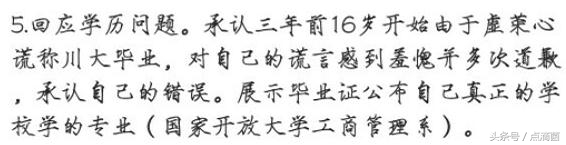 5.回应学历问题。承认三年前16岁开始由于虚荣心
谎称川大毕业，对自己的谎言感到羞愧并多次道歉
，承认自己的错误。展示毕业证公布自己真正的学
校学的专业（国家开放大学工商管理系）。
头条号 / 点滴圈